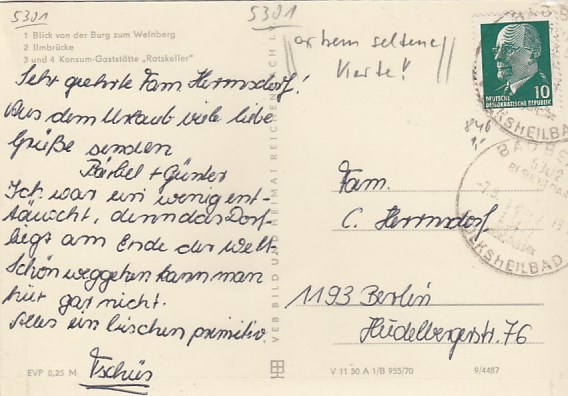 5301
5301
1 Blick von der Burg zum Weinberg
2 Ilmbrücke
3 und 4 Konsum-Gaststätte „Ratskeller"
extrem seltene
Karte!!
Sehr geehrte Fam. Herrnsdorf!
Aus dem Urlaub viele liebe
Grüße senden
Bärbel + Günter
Ich war ein wenig ent-
täuscht, denn das Dorf
liegt am Ende der Welt.
Schön weggehen kann man
hier gar nicht.
Alles ein bischen primitiv.
Tschüs
EVP 0,25 M
VEB BILD UND HEIMAT REICHENBACH I. V.
10
DEUTSCHE
DEMOKRATISCHE REPUBLIK
846
1,-
BAD BERKA
5302
VOLKSHEILBAD
VOLKSHEILBAD
Fam.
C. Herrnsdorf
1193 Berlin
Heidelbergerstr. 76
V 11 50 A 1/B 955/70
9/4487